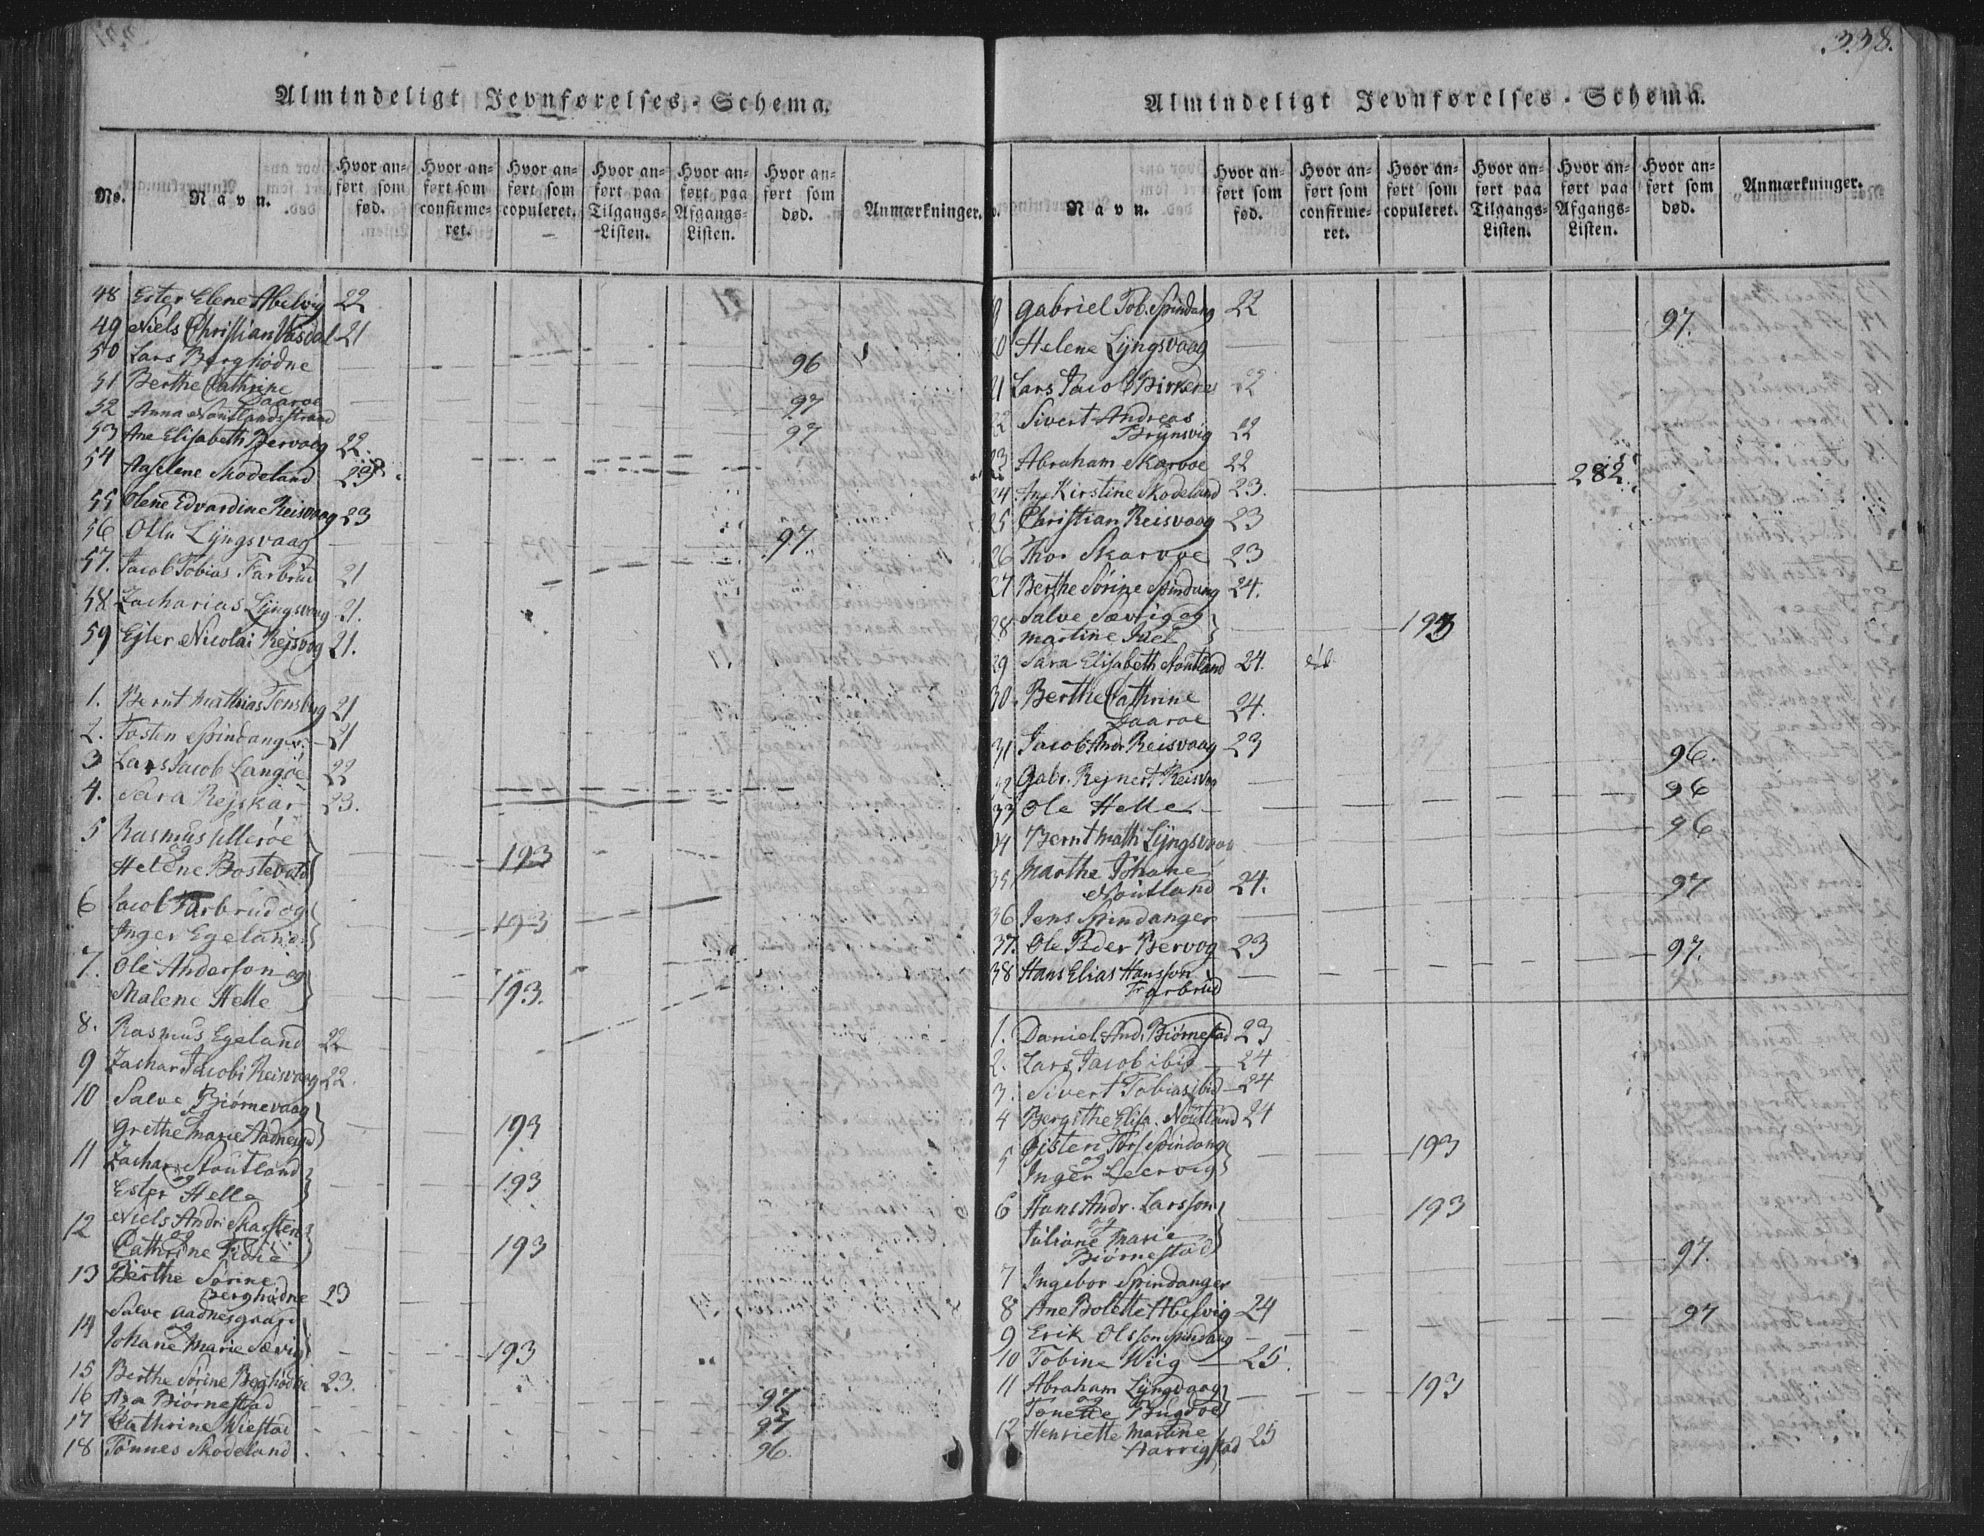 Almindeligt Jevnførelses-Schema.
No. Navn. Hvor anført som fød. Hvor anført som confirmeret. Hvor anført som copuleret. Hvor anført paa Tilgangs-Listen. Hvor anført paa Afgangs-Listen. Hvor anført som død. Anmærkninger.
48 Ester Elene Abelvig 22
49 Niels Christian Vasdal 21
50 Lars Berghødne 96
51 Berthe Cathrine Daaroe 97
52 Anna Noutlandsstrand 97
53 Ane Elisabeth Bervaag 22.
54 Aaselene Skodeland 23
55 Olene Edvardine Reisvaag 23
56 Olla Lyngsvaag 97.
57. Jacob Tobias Farbrud 21
58. Zacharias Lyngsvaag 21.
59 Ejler Nicolai Rejsvog 21.
1. Bernt Mathias Tonsberg 21
2. Tosten Spindanger 21
3 Lars Jacob Langøe 22
4. Sara Rejskar 23.
5 Rasmus Ullerøe
og
Helene Bostevold 193
6 Jacob Farbrud og
Inger Egeland 193
7. Ole Anderson og
Malene Helle 193.
8. Rasmus Egeland 22
9 Zachar Jacobi Reisvaag 22.
10 Salve Biørnevaag
Grethe Marie Aadnesgd 193
11 Zachar Noutland
og
Ester Helle 193
12 Niels Andr. Karsten
og
Cathrine Fidie 193
13 Berthe Sørine
Berghødne 23
14 Salve Aadnesgaard
og
Johane Marie Sævig 193
15 Berthe Sørine Beghødne 23.
16 Asa Biørnestad 97
17 Cathrine Wiestad 97
18 Tønnes Skodeland 96.
338.
Almindeligt Jevnførelses-Schema.
Navn. Hvor anført som fød. Hvor anført som confirmeret. Hvor anført som copuleret. Hvor anført paa Tilgangs-Listen. Hvor anført paa Afgangs-Listen. Hvor anført som død. Anmærkninger.
Gabriel Tob. Spindang 22
20 Helene Lyngsvaag 97.
21 Lars Jacob Birkenes 22
22 Sivert Andreas
Brynsvig 22
23 Abraham Skarvoe 22
24. An Kirstine Skodeland 23. 282.
25 Christian Reisvaag 23
26 Thor Skarvoe 23
27 Berthe Sørine Spindang 24.
28 Salve Sævtig og
Martine Juel 193
29 Sara Elisabeth Noutland 24.
30. Berthe Cathrine
Daaroe 24.
31 Jacob Andr. Reisvaag 23
32 Gabr. Rejnert Reisvog 96.
33 Ole Helle 96
34 Bernt Math Lyngsvaag 96
35 Marthe Johane
Noutland 24.
36 Jens Spindanger 97
37. Ole Peder Bervog 23
38 Hans Elias Hansson
Farbrud 97.
1. Daniel And. Biørnestad 23
2. Lars Jacob ibid 24
3. Sivert Tobias ibid 24
4 Bergithe Elisa. Noutland 24
5 Gisten Tors. Spindang
og
Inger Leervig 193
6 Hans Andr. Larsson
og
Juliane Marie
Biørnestad 193
7 Ingebor Spindanger 97.
8 Ane Bolette Abelvig 24
9 Erik Olsson Spindang 97
10 Tobine Wiig 25.
11 Abraham Lyngvaag
og
Tonette Bugdøe 193
12 Henriette Martine
Harrigstad 25